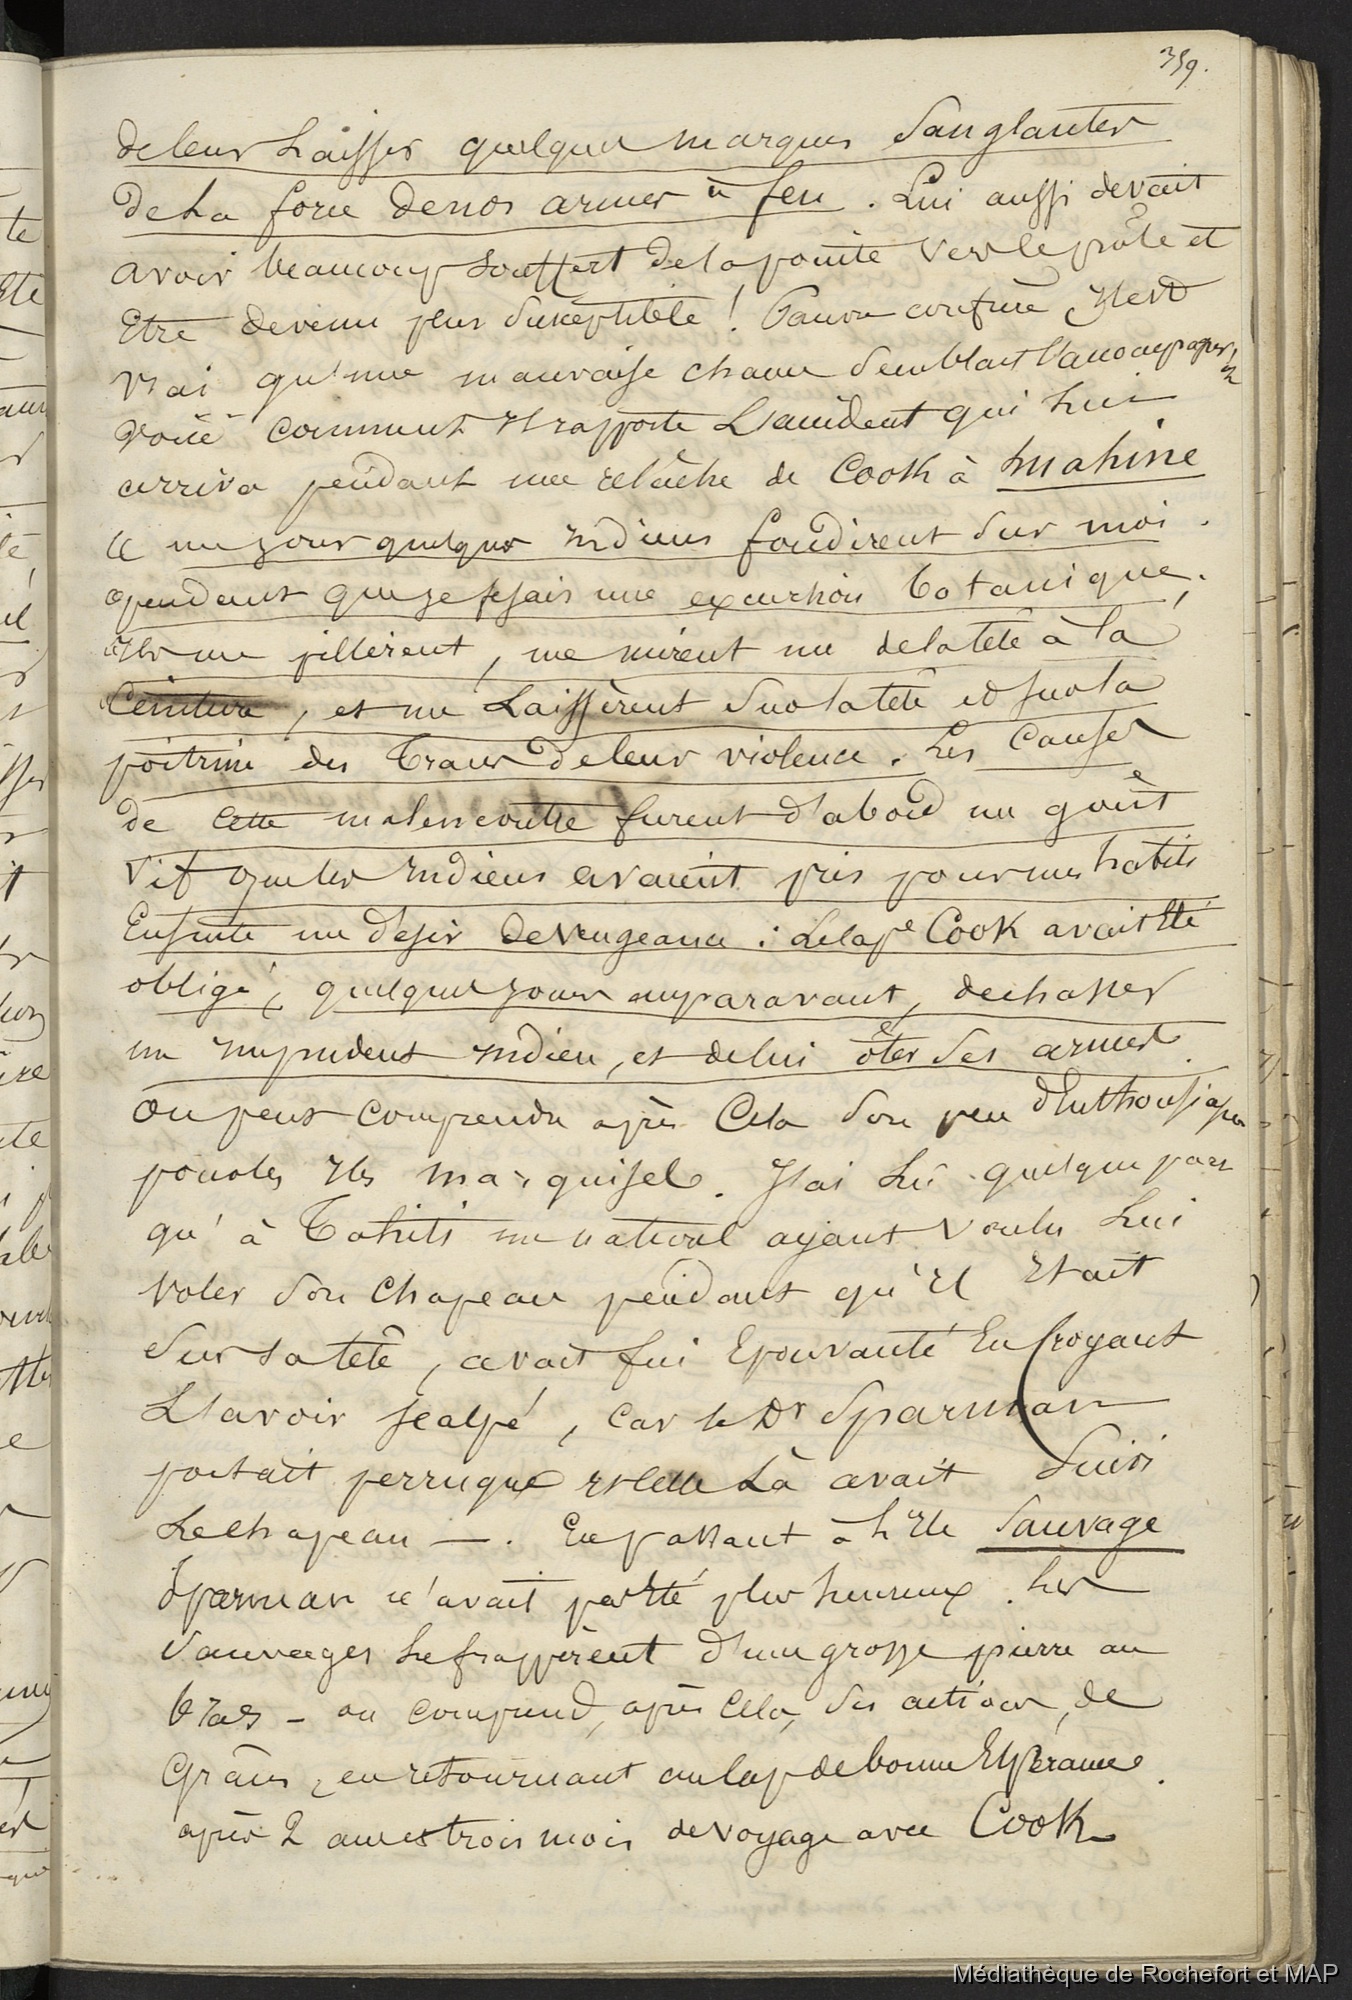 359.
de leur Laisser quelques marques Sanglantes
de La force de nos armes à feu. Lui aussi devait
avoir beaucoup souffert de la pointe vers le pôle et
Etre devenu plus Suseptible ! Pauvre confrère Il est
Vrai qu'une mauvaise chance Semblait l'accompagner,
voici comment Il rapporte L'accident qui Lui
arriva pendant une relâche de Cook à huahine
« un jour quelques Indiens fondirent Sur moi
« pendant que je fesais une excursion botanique,
« Ils me pillèrent, me mirent nu de la tête à la
« Ceinture, et me Laissèrent Sur la tête et sur la
poitrine des traces de leur violence. Les Causes
de cette malencontre furent d'abord un goût
Vif que les Indiens avaient pris pour mes habits
Ensuite un désir de vengeance : Le Cape Cook avait Eté
obligé, quelques jours auparavant, de chasser
un impudent Indien, et de lui ôter Ses armes.
On peut comprendre après Cela Son peu d'Enthousiasme
pour les Iles marquises. J'ai Lu quelque part
qu'à Tahiti un naturel ayant voulu Lui
voler Son chapeau pendant qu'Il Etait
Sur Sa tête, avait fui Epouvanté En Croyant
L'avoir scalpé, car le Dr Sparman
portait perruque et celle Là avait Suivi
Le chapeau —. En passant à L'Ile Sauvage
Sparman n'avait pas Eté plus heureux. Les
Sauvages Le frappèrent d'une grosse pierre au
bras – on comprend, après Cela, Ses actions de
Grâces, en retournant au Cap de bonne Espérance.
après 2 ans et trois mois de voyage avec Cook
Médiathèque de Rochefort et MAP